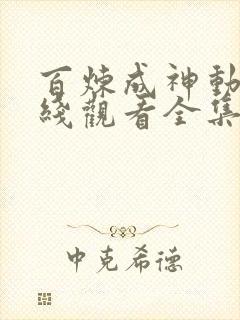 百炼成神動
綫觀看全集
中克希德